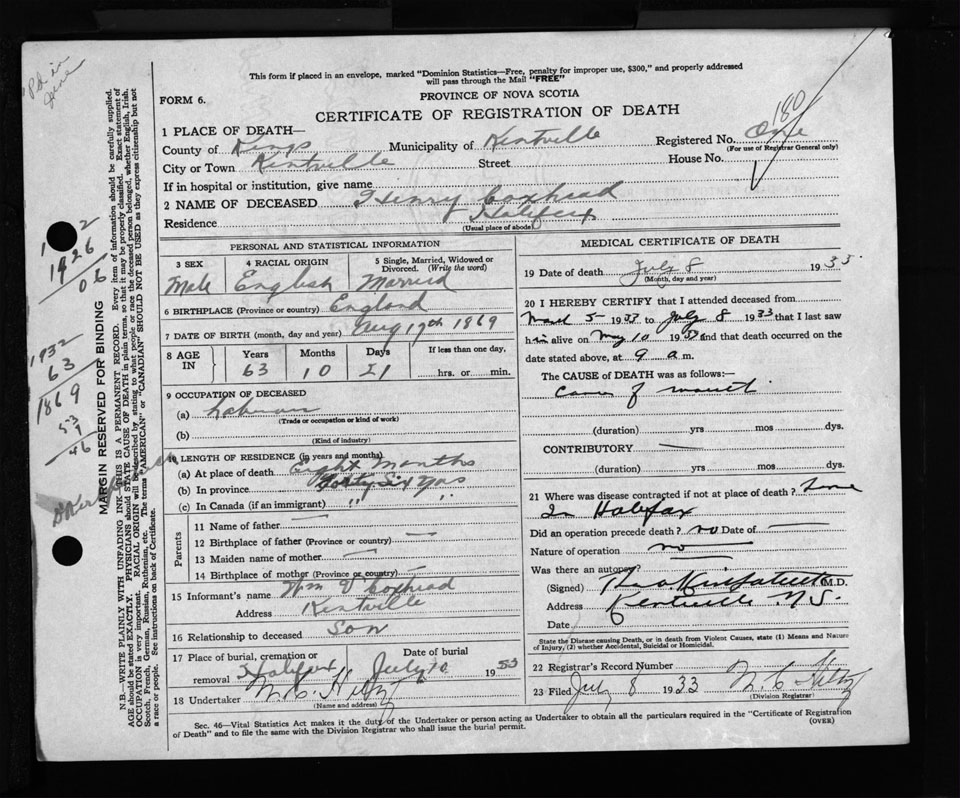 This form if placed in an envelope, marked "Dominion Statistics—Free, penalty for improper use, $300," and properly addressed
will pass through the Mail "FREE"
PROVINCE OF NOVA SCOTIA
FORM 6.
CERTIFICATE OF REGISTRATION OF DEATH
180
1 PLACE OF DEATH—
County of Kings Municipality of Kentville Registered No. One
(For use of Registrar General only)
City or Town Kentville Street House No.
If in hospital or institution, give name
2 NAME OF DECEASED Henry Coxhead
Residence Halifax
(Usual place of abode)
PERSONAL AND STATISTICAL INFORMATION
3 SEX 4 RACIAL ORIGIN 5 Single, Married, Widowed or
Divorced. (Write the word)
Male English Married
6 BIRTHPLACE (Province or country) England
7 DATE OF BIRTH (month, day and year) Aug 17th 1869
8 AGE IN Years Months Days If less than one day,
63 10 21 hrs. or min.
9 OCCUPATION OF DECEASED
(a) Laborer
(Trade or occupation or kind of work)
(b)
(Kind of industry)
10 LENGTH OF RESIDENCE (in years and months)
(a) At place of death Eight Months
(b) In province Forty Six Yrs
(c) In Canada (if an immigrant) " "
Parents
11 Name of father —
12 Birthplace of father (Province or country) —
13 Maiden name of mother —
14 Birthplace of mother (Province or country) —
15 Informant's name Wm V Coxhead
Address Kentville
16 Relationship to deceased Son
17 Place of burial, cremation or Date of burial
removal Halifax July 10 1933
18 Undertaker N. C. Hiltz
(Name and address)
MEDICAL CERTIFICATE OF DEATH
19 Date of death July 8 1933.
(Month, day and year)
20 I HEREBY CERTIFY that I attended deceased from
5— 1933 to July 8 1933 that I last saw
him alive on May 10 1933 and that death occurred on the
date stated above, at 9 a.m.
The CAUSE of DEATH was as follows:
Cancer of mouth
(duration) yrs mos dys.
CONTRIBUTORY —
(duration) yrs mos dys.
21 Where was disease contracted if not at place of death?
In Halifax
Did an operation precede death? no Date of —
Nature of operation no
Was there an autopsy?
(Signed) M.D.
Address Kentville N.S.
Date
State the Disease causing Death, or in death from Violent Causes, state (1) Means and Nature
of Injury, (2) whether Accidental, Suicidal or Homicidal.
22 Registrar's Record Number
23 Filed July 8 1933 N. C. Hiltz
(Division Registrar)
Sec. 46—Vital Statistics Act makes it the duty of the Undertaker or person acting as Undertaker to obtain all the particulars required in the "Certificate of Registration
of Death" and to file the same with the Division Registrar who shall issue the burial permit.
(OVER)
MARGIN RESERVED FOR BINDING
N.B.—WRITE PLAINLY WITH UNFADING INK—THIS IS A PERMANENT RECORD. Every item of information should be carefully supplied.
AGE should be stated EXACTLY. PHYSICIANS should STATE CAUSE OF DEATH in plain terms, so that it may be properly classified. Exact statement of
OCCUPATION is very important. RACIAL ORIGIN will be described by stating to what people or race the deceased person belonged, whether English, Irish,
Scotch, French, German, Russian, Ruthenian, etc. The terms "AMERICAN" or "CANADIAN" SHOULD NOT BE USED as they express citizenship but not
a race or people. See instructions on back of Certificate.
1926
06
1932
63
1869
53
46